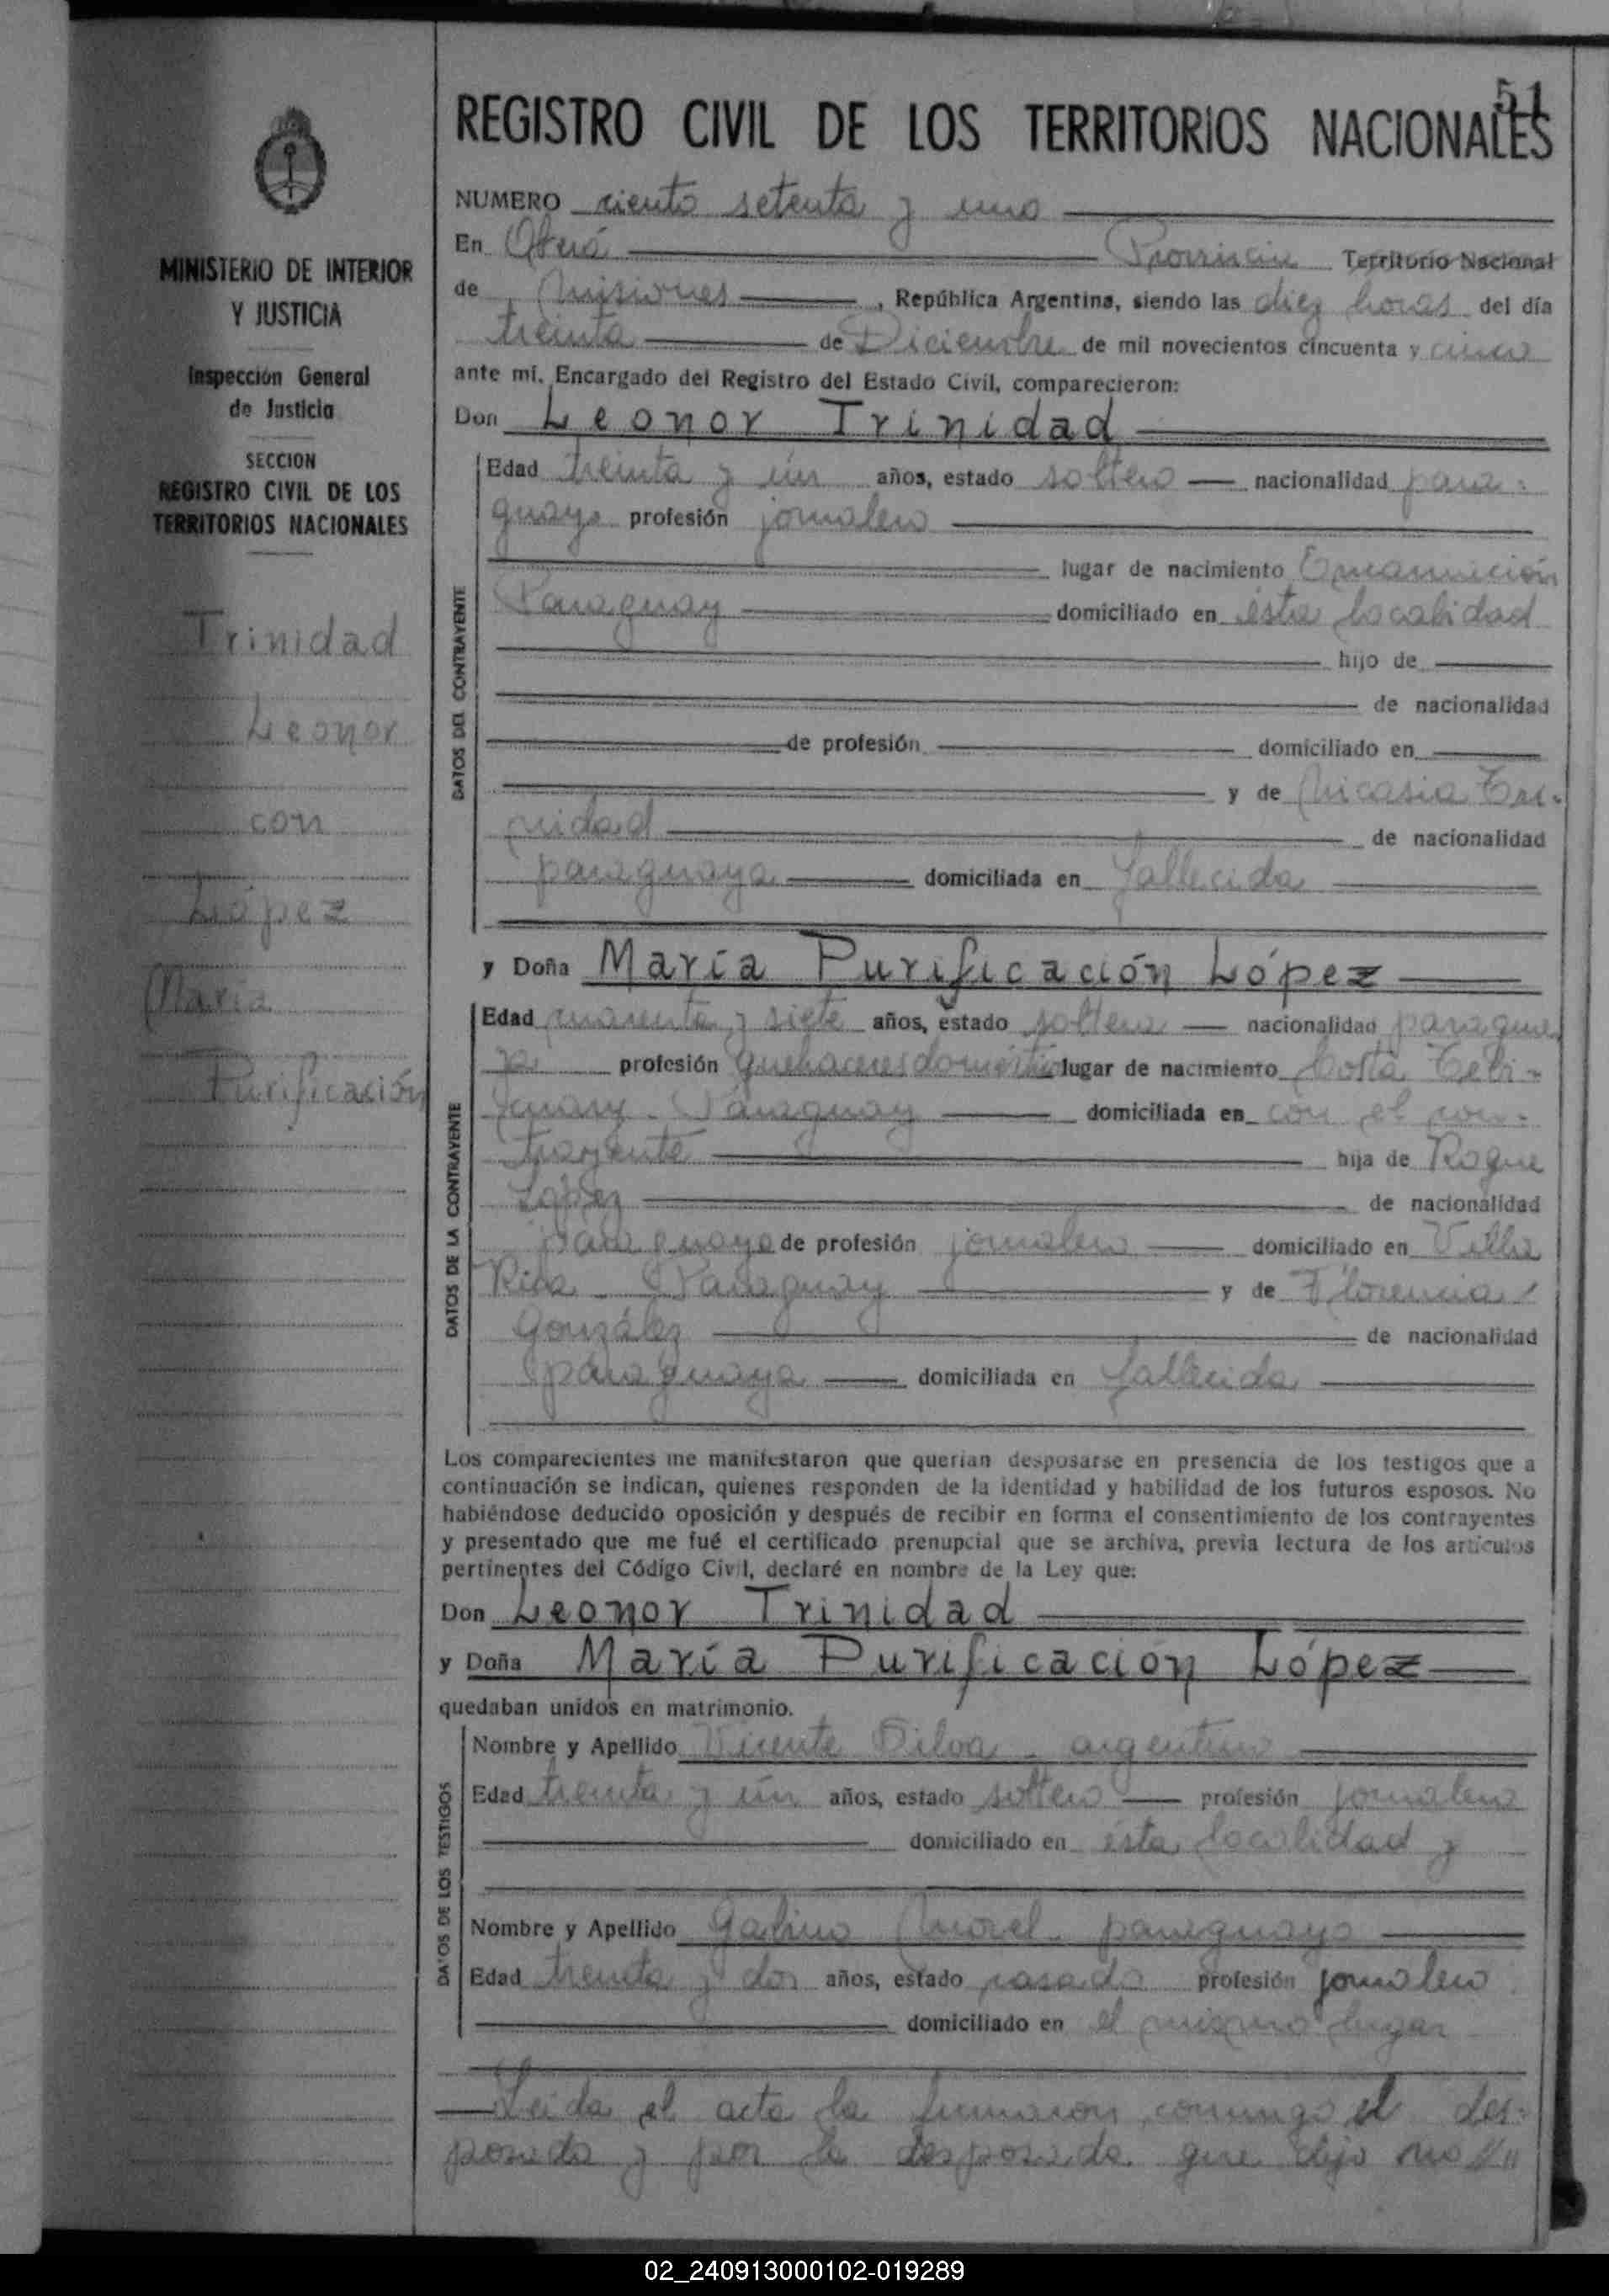 51
REGISTRO CIVIL DE LOS TERRITORIOS NACIONALES
MINISTERIO DE INTERIOR
Y JUSTICIA
Inspección General
de Justicia
SECCION
REGISTRO CIVIL DE LOS
TERRITORIOS NACIONALES
Trinidad
Leonor
con
López
María
Purificación
NUMERO ciento setenta y uno
En Oberá Provincia Territorio Nacional
de Misiones, República Argentina, siendo las diez horas del día
treinta de Diciembre de mil novecientos cincuenta y cinco
ante mí, Encargado del Registro del Estado Civil, comparecieron:
Don Leonor Trinidad
DATOS DEL CONTRAYENTE
Edad treinta y ún años, estado soltero nacionalidad para-
guayo profesión jornalero
lugar de nacimiento Encarnación
Paraguay domiciliado en ésta localidad
hijo de
de nacionalidad
de profesión domiciliado en
y de Nicasia Tri-
nidad de nacionalidad
paraguaya domiciliada en fallecida
y Doña María Purificación López
DATOS DE LA CONTRAYENTE
Edad cuarenta y siete años, estado soltera nacionalidad paragua
ya profesión quehaceres domésticos lugar de nacimiento Costa Tebi-
cuary - Paraguay domiciliada en con el con-
trayente hija de Roque
López de nacionalidad
paraguayo de profesión jornalero domiciliado en Villa
Rica - Paraguay y de Florencia
González de nacionalidad
paraguaya domiciliada en fallecida
Los comparecientes me manifestaron que querían desposarse en presencia de los testigos que a
continuación se indican, quienes responden de la identidad y habilidad de los futuros esposos. No
habiéndose deducido oposición y después de recibir en forma el consentimiento de los contrayentes
y presentado que me fué el certificado prenupcial que se archiva, previa lectura de los artículos
pertinentes del Código Civil, declaré en nombre de la Ley que:
Don Leonor Trinidad
y Doña María Purificación López
quedaban unidos en matrimonio.
DATOS DE LOS TESTIGOS
Nombre y Apellido Vicente Silva - argentino
Edad treinta y ún años, estado soltero profesión jornalero
domiciliado en ésta localidad y
Nombre y Apellido Galino Morel - paraguayo
Edad treinta y dos años, estado casado profesión jornalero
domiciliado en el mismo lugar
Leida el acta la firmaron conmigo el des-
posado y por la desposada que dijo no
02_240913000102-019289